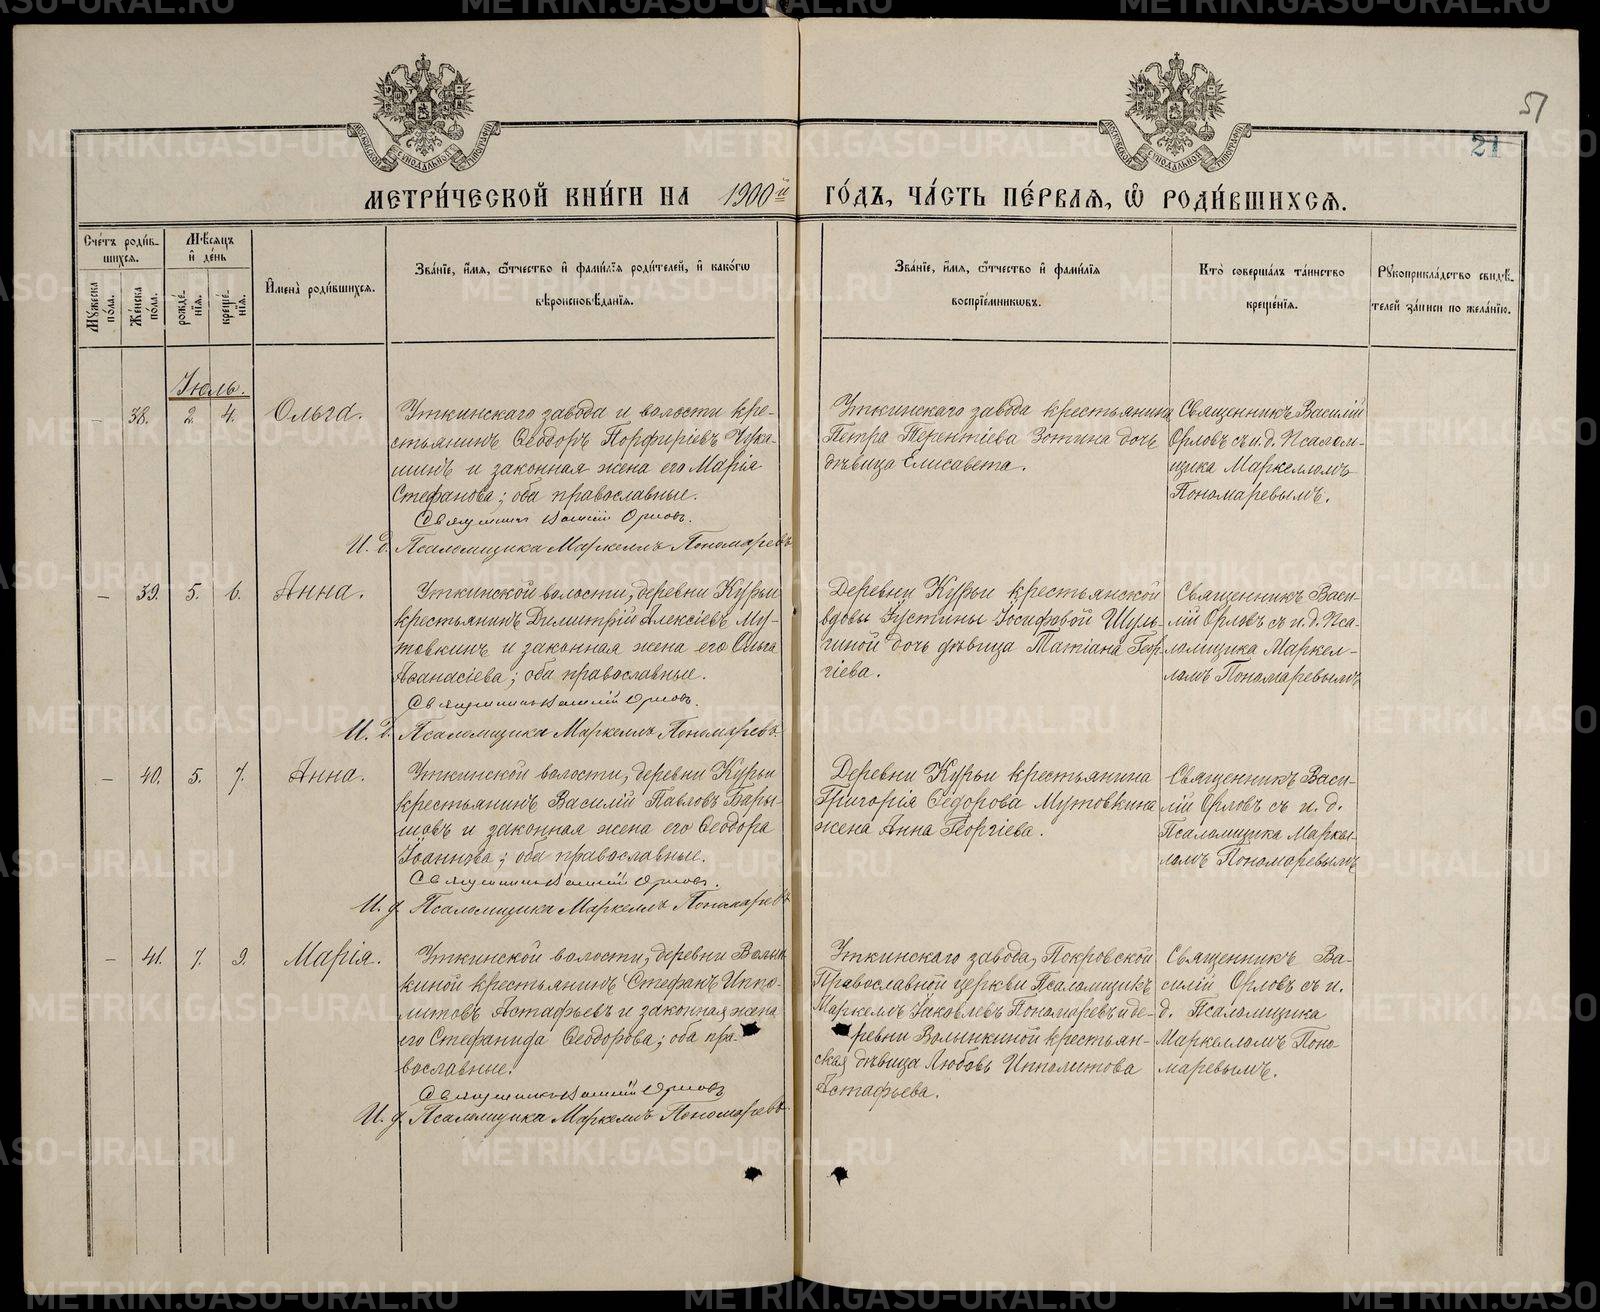 51
21
МОСКОВСКОЙ СѴНОДАЛЬНОЙ ТИПОГРАФІИ
МОСКОВСКОЙ СѴНОДАЛЬНОЙ ТИПОГРАФІИ
МЕТРИ́ЧЕСКОЙ КНИ́ГИ НА 1900й ГО́ДЪ, ЧА́СТЬ ПЕ́РВАЯ, Ѽ РОДИ́ВШИХСЯ.
Сче́тъ роди́в-
шихся.
Му́жеска по́ла.
Же́нска по́ла.
Мѣ́сяцъ
и҆ де́нь
рожде́-
нїя.
креще́-
нїя.
И҆мена̀ роди́вшихся.
Зва́нїе, и҆́мя, ѻ҆́тчество и҆ фами́лїя роди́телей, и҆ како́гѡ
вѣроисповѣ́данїя.
Зва́нїе, и҆́мя, ѻ҆́тчество и҆ фами́лїя
воспрїе́мниковъ.
Кто̀ соверша́лъ та́инство
креще́нїя.
Рукоприкла́дство свидѣ́-
телей за́писи по жела́нїю.
Іюль.
— 38. 2. 4. Ольга.
Уткинскаго завода и волости кре-
стьянинъ Ѳеодоръ Порфиріевъ Чука-
шинъ и законная жена его Марія
Стефанова; оба православные.
Священникъ Василій Орловъ.
И. д. Псаломщика Маркеллъ Пономаревъ
Уткинскаго завода крестьянина
Петра Терентіева Зотина дочь
дѣвица Елисавета.
Священникъ Василій
Орловъ съ и. д. Псалом-
щика Маркелломъ
Пономаревымъ.
— 39. 5. 6. Анна.
Уткинской волости, деревни Курьи
крестьянинъ Димитрій Алексіевъ Му-
товкинъ и законная жена его Ольга
Аѳанасіева; оба православные.
Священникъ Василій Орловъ.
И. д. Псаломщика Маркеллъ Пономаревъ.
Деревни Курьи крестьянской
вдовы Іустины Іосифовой Шуль-
гиной дочь дѣвица Татіана Геор-
гіева.
Священникъ Васи-
лій Орловъ съ и. д. Пса-
ломщика Маркел-
ломъ Пономаревымъ
— 40. 5. 7. Анна.
Уткинской волости, деревни Курьи
крестьянинъ Василій Павловъ Бары-
шовъ и законная жена его Ѳеодора
Іоаннова; оба православные.
Священникъ Василій Орловъ.
И. д. Псаломщика Маркеллъ Пономаревъ
Деревни Курьи крестьянина
Григорія Ѳедорова Мутовкина
жена Анна Георгіева.
Священникъ Васи-
лій Орловъ съ и. д.
Псаломщика Маркел-
ломъ Пономаревымъ
— 41. 7. 9. Марія.
Уткинской волости, деревни Волын-
киной крестьянинъ Стефанъ Иппо-
литовъ Астафьевъ и законная жена
его Стефанида Ѳеодорова; оба пра-
вославные.
Священникъ Василій Орловъ
И. д. Псаломщика Маркеллъ Пономаревъ.
Уткинскаго завода, Покровской
Православной церкви Псаломщикъ
Маркеллъ Іаковлевъ Пономаревъ и де-
ревни Волынкиной крестьян-
ская дѣвица Любовь Ипполитова
Астафьева.
Священникъ Ва-
силій Орловъ съ и.
д. Псаломщика
Маркелломъ Поно-
маревымъ.
METRIKI.GASO-URAL.RU